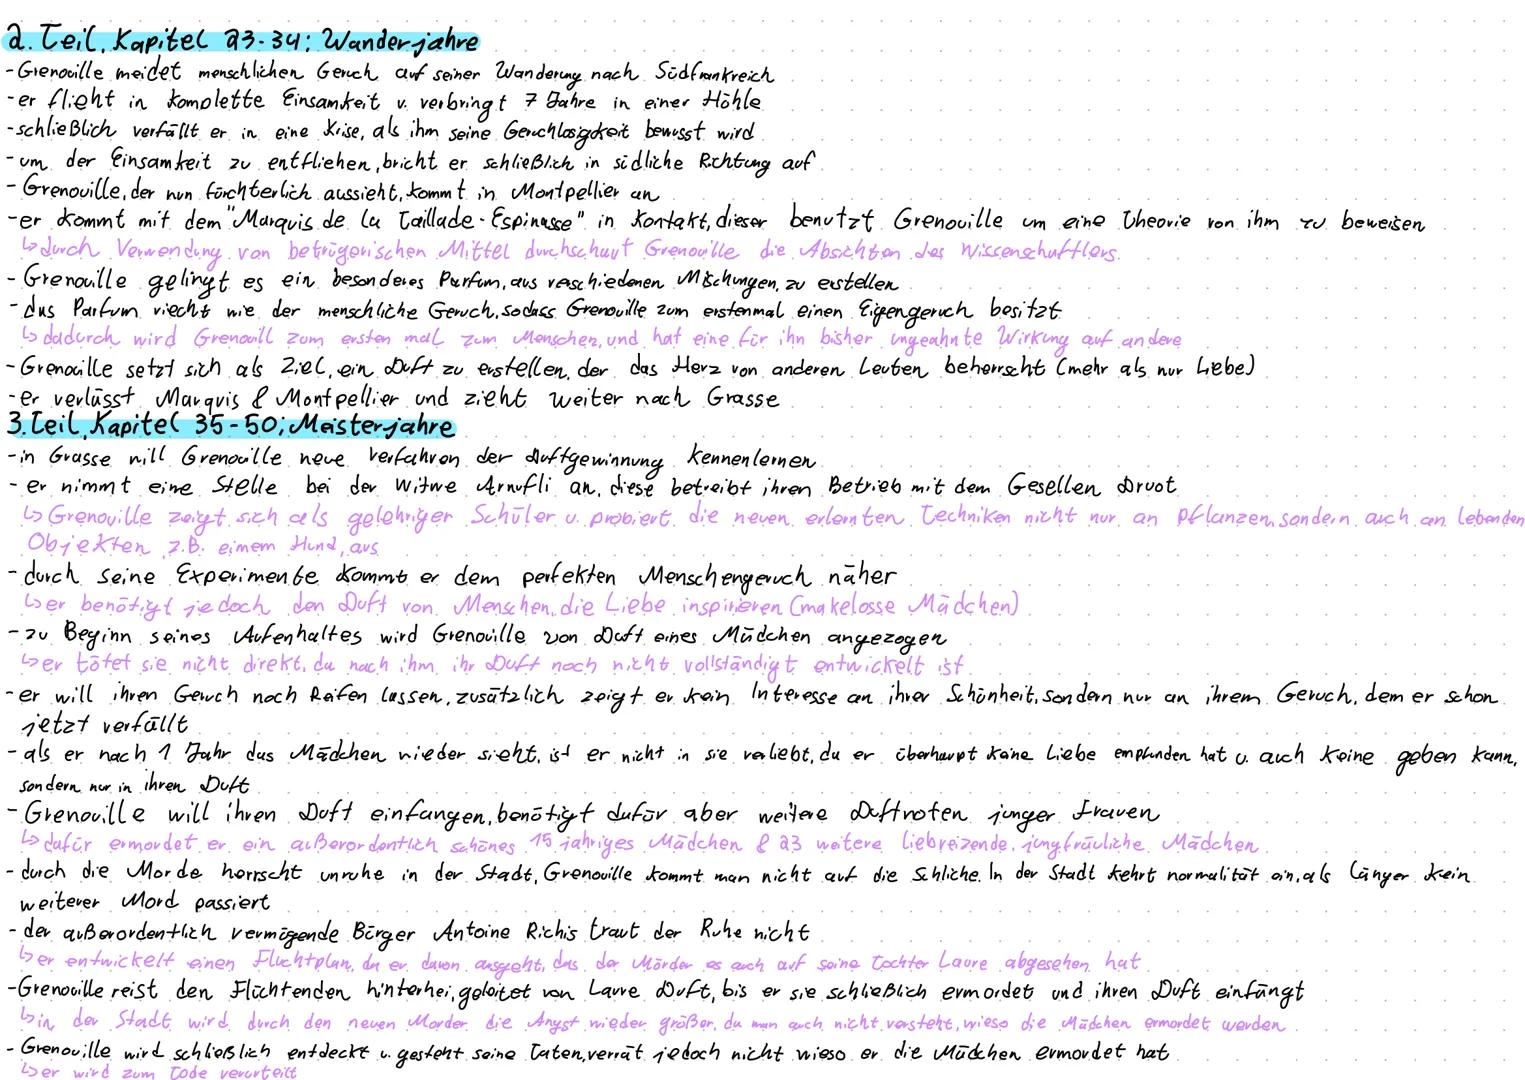 2. Teil, Kapitel 23-34; Wanderjahre
- Grenouille meidet menschlichen Geruch auf seiner Wanderung nach Südfrankreich
- er flieht in komplette Einsamkeit u. verbringt 7 Jahre in einer Höhle
- schließlich verfällt er in eine Krise, als ihm seine Geruchlosigkeit bewusst wird
- um der Einsamkeit zu entfliehen, bricht er schließlich in südliche Richtung auf
- Grenouille, der nun fürchterlich aussieht, kommt in Montpellier an
- er kommt mit dem "Marquis de la Taillade-Espinasse" in Kontakt, dieser benutzt Grenouille um eine Theorie von ihm zu beweisen
↳ durch Verwendung von betrügerischen Mittel durchschaut Grenouille die Absichten des Wissenschaftlers.
- Grenouille gelingt es ein besonderes Parfum, aus verschiedenen Mischungen, zu erstellen
- das Parfum riecht wie der menschliche Geruch, sodass Grenouille zum erstenmal einen Eigengeruch besitzt
↳ dadurch wird Grenouill zum ersten mal zum Menschen, und hat eine für ihn bisher ungeahnte Wirkung auf andere
- Grenouille setzt sich als Ziel, ein Duft zu erstellen, der das Herz von anderen Leuten beherrscht (mehr als nur Liebe)
- er verlässt Marquis & Montpellier und zieht weiter nach Grasse
3. Teil, Kapitel 35-50; Meisterjahre
- in Grasse will Grenouille neue Verfahren der Duftgewinnung kennenlernen
- er nimmt eine Stelle bei der Witwe Arnufli an, diese betreibt ihren Betrieb mit dem Gesellen Druot
↳ Grenouille zeigt sich als gelehriger Schüler u. probiert die neuen erlernten Techniken nicht nur an Pflanzen, sondern auch an lebenden
Objekten z.B. einem Hund, aus
- durch seine Experimente kommt er dem perfekten Menschengeruch näher
↳ er benötigt jedoch den Duft von Menschen, die Liebe inspirieren (makelosse Mädchen)
- zu Beginn seines Aufenhaltes wird Grenouille von Duft eines Mädchen angezogen
↳ er tötet sie nicht direkt, da nach ihm ihr Duft noch nicht vollständigt entwickelt ist
- er will ihren Geruch noch Reifen lassen, zusätzlich zeigt er kein Interesse an ihrer Schönheit, sondern nur an ihrem Geruch, dem er schon
jetzt verfällt
- als er nach 1 Jahr das Mädchen wieder sieht, ist er nicht in sie verliebt, da er überhaupt keine Liebe empfunden hat u. auch keine geben kann,
sondern nur in ihren Duft
- Grenouille will ihren Duft einfangen, benötigt dafür aber weitere Duftnoten junger Frauen
↳ dafür ermordet er ein außerordentlich schönes 15 jähriges Mädchen & 23 weitere liebreizende, jungfräuliche Mädchen
- durch die Morde herrscht unruhe in der Stadt, Grenouille kommt man nicht auf die Schliche. In der Stadt kehrt normalität ein, als länger kein
weiterer Mord passiert
- der außerordentlich vermögende Bürger Antoine Richis traut der Ruhe nicht
↳ er entwickelt einen Fluchtplan, da er davon ausgeht, das der Mörder es auch auf seine Tochter Laure abgesehen hat
- Grenouille reist den Flüchtenden hinterhei, geleitet von Laure Duft, bis er sie schließlich ermordet und ihren Duft einfängt
↳ in der Stadt wird durch den neuen Morder die Angst wieder größer, da man auch nicht versteht, wieso die Mädchen ermordet werden
- Grenouille wird schließlich entdeckt u. gesteht seine Taten, verrät jedoch nicht wieso er die Mädchen ermordet hat
↳ er wird zum Tode verurteilt